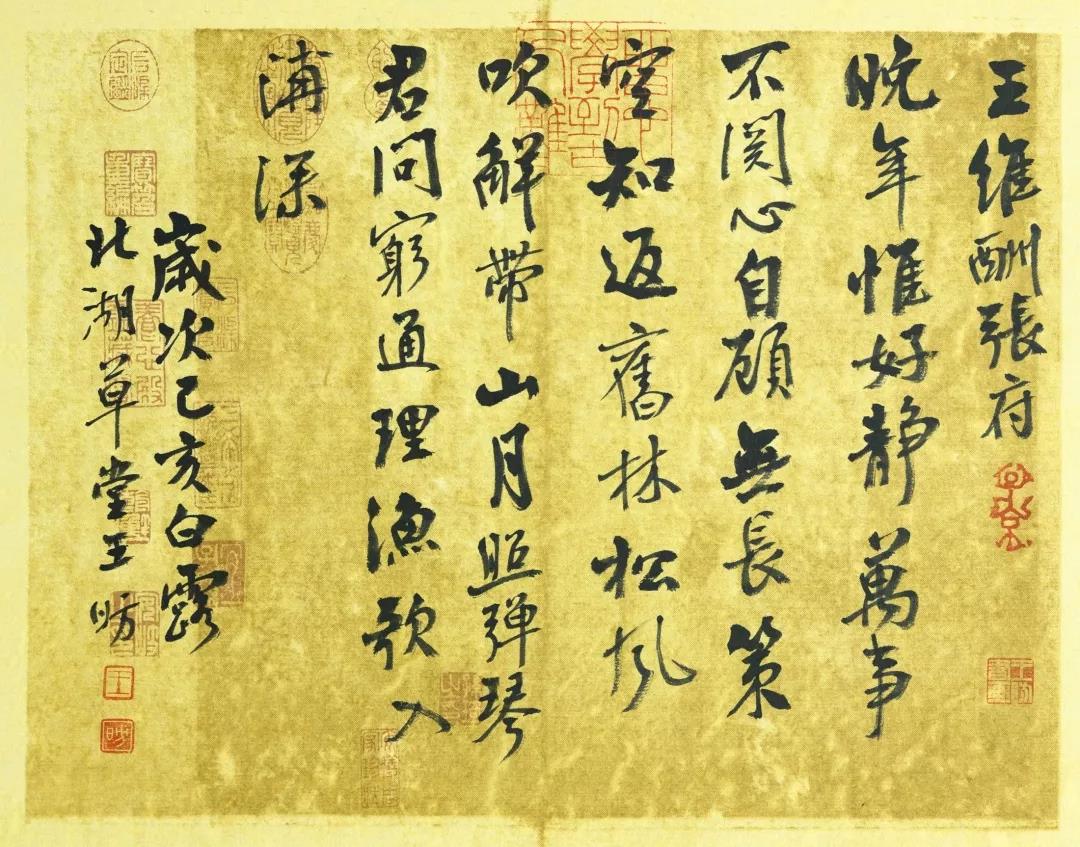 王維酬張府
晚年惟好静萬事
不関心自顧無長策
空知返舊林松风
吹解帶山月照弾琴
君問窮通理漁歌入
浦深
歲次己亥白露
北湖草堂王昉
王
昉